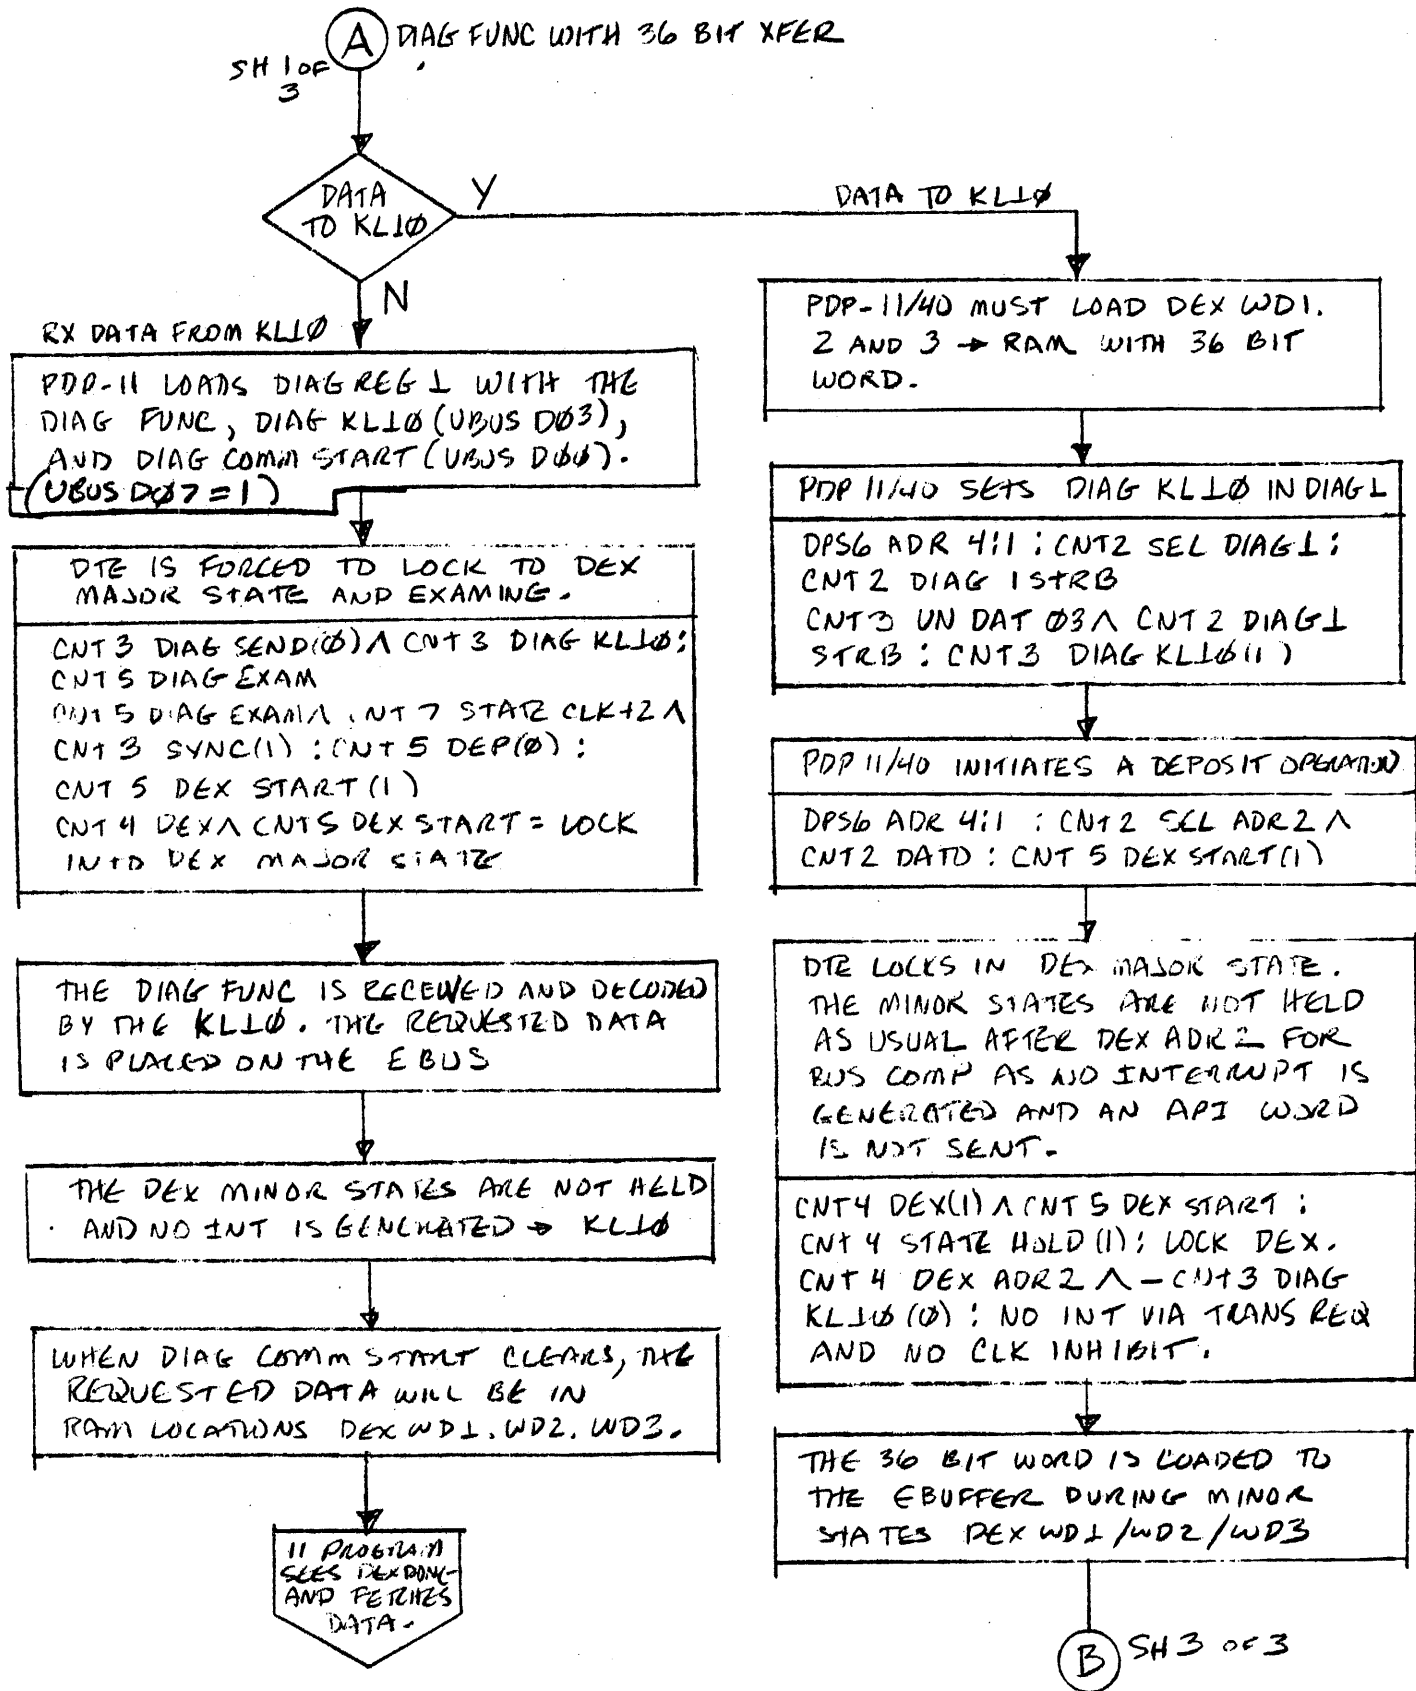 A DIAG FUNC WITH 36 BIT XFER
SH 1 OF
3
DATA
TO KL1Ø
Y
N
DATA TO KL1Ø
RX DATA FROM KL1Ø
PDP-11 LOADS DIAG REG 1 WITH THE
DIAG FUNC, DIAG KL1Ø (UBUS DØ3),
AND DIAG COMM START (UBUS DØØ).
(UBUS DØ7 = 1)
DTE IS FORCED TO LOCK TO DEX
MAJOR STATE AND EXAMING.
CNT 3 DIAG SEND(Ø) Λ CNT 3 DIAG KL1Ø:
CNT 5 DIAG EXAM
CNT 5 DIAG EXAM Λ CNT 7 STATE CLK+2 Λ
CNT 3 SYNC(1) : CNT 5 DEP(Ø) :
CNT 5 DEX START (1)
CNT 4 DEX Λ CNT 5 DEX START = LOCK
INTO DEX MAJOR STATE
THE DIAG FUNC IS RECEIVED AND DECODED
BY THE KL1Ø. THE REQUESTED DATA
IS PLACED ON THE EBUS
THE DEX MINOR STATES ARE NOT HELD
AND NO INT IS GENERATED → KL1Ø
WHEN DIAG COMM START CLEARS, THE
REQUESTED DATA WILL BE IN
RAM LOCATIONS DEX WD1. WD2. WD3.
11 PROGRAM
SEES DEXDONE
AND FETCHES
DATA.
PDP-11/40 MUST LOAD DEX WD1.
2 AND 3 → RAM WITH 36 BIT
WORD.
PDP 11/40 SETS DIAG KL1Ø IN DIAG 1
DPS6 ADR 4:1 : CNT2 SEL DIAG1 :
CNT 2 DIAG 1 STRB
CNT 3 UN DAT Ø3 Λ CNT 2 DIAG1
STRB : CNT3 DIAG KL1Ø (1)
PDP 11/40 INITIATES A DEPOSIT OPERATION
DPS6 ADR 4:1 : CNT2 SEL ADR2 Λ
CNT2 DATO : CNT 5 DEX START (1)
DTE LOCKS IN DEX MAJOR STATE.
THE MINOR STATES ARE NOT HELD
AS USUAL AFTER DEX ADR 2 FOR
BUS COMP AS NO INTERRUPT IS
GENERATED AND AN API WORD
IS NOT SENT.
CNT4 DEX(1) Λ CNT 5 DEX START :
CNT 4 STATE HOLD (1) : LOCK DEX.
CNT 4 DEX ADR 2 Λ - CNT 3 DIAG
KL1Ø (Ø) : NO INT VIA TRANS REQ
AND NO CLK INHIBIT.
THE 36 BIT WORD IS LOADED TO
THE EBUFFER DURING MINOR
STATES DEX WD1 / WD2 / WD3
B SH 3 OF 3